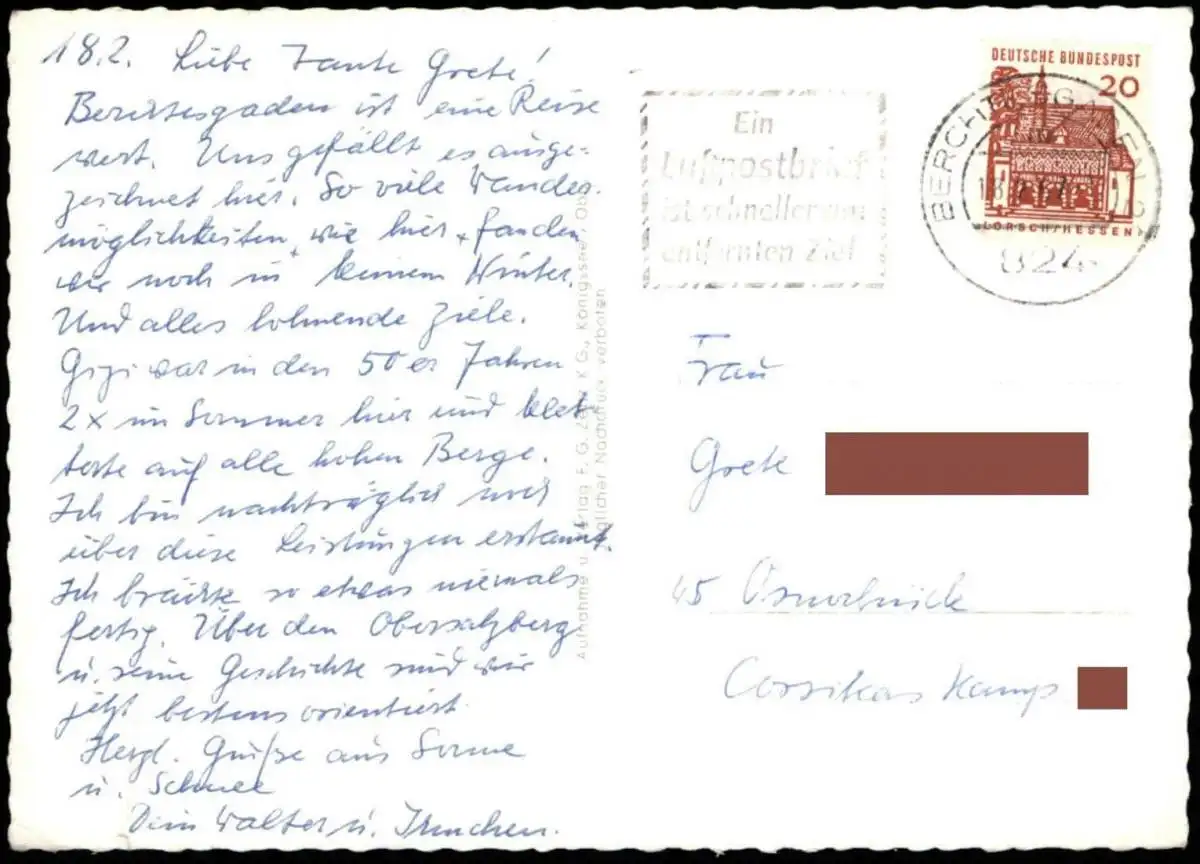 18.2. Liebe Tante Grete!
Berchtesgaden ist eine Reise
wert. Uns gefällt es ausge-
zeichnet hier. So viele Wander-
möglichkeiten, wie hier, fanden
wir noch in keinem Winter.
Und alles lohnende Ziele.
Gigi war in den 50er Jahren
2x im Sommer hier und klet-
terte auf alle hohen Berge.
Ich bin nachträglich noch
über diese Leistungen erstaunt.
Ich brächte so etwas niemals
fertig. Über den Obersalzberg
u. seine Geschichte sind wir
jetzt bestens orientiert.
Herzl. Grüße aus Sonne
u. Schnee
Dein Walter u. Irmchen.
Aufnahme u. Verlag F. G. KG., Königssee, Ob
Nachdruck verboten
Ein
Luftpostbrief
ist schneller am
entfernten Ziel
DEUTSCHE BUNDESPOST
20
LORSCH/HESSEN
BERCHTESGADEN
824
Frau
Grete
45 Osnabrück
Corsikas Kamp